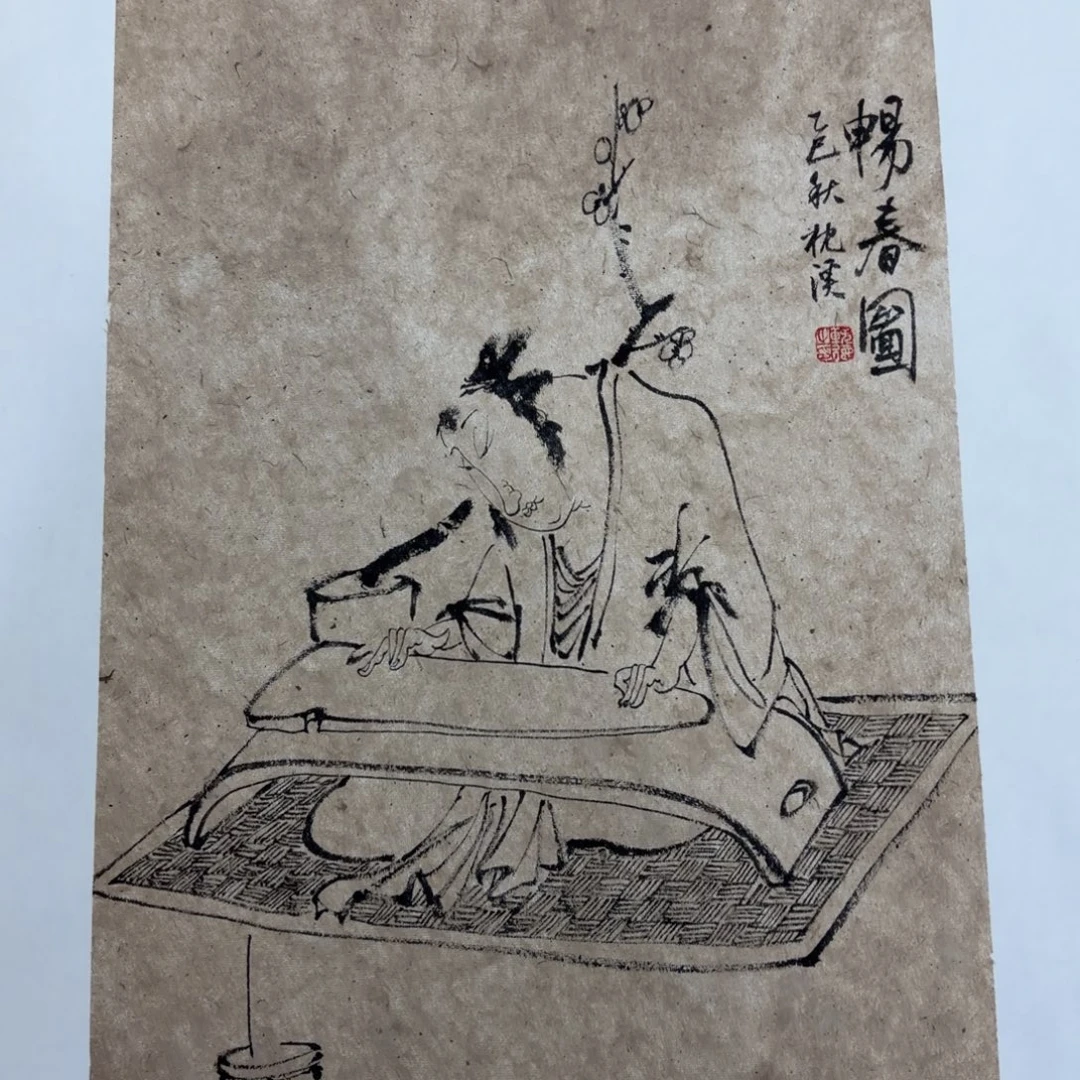 暢春圖
乙巳秋 枕溪